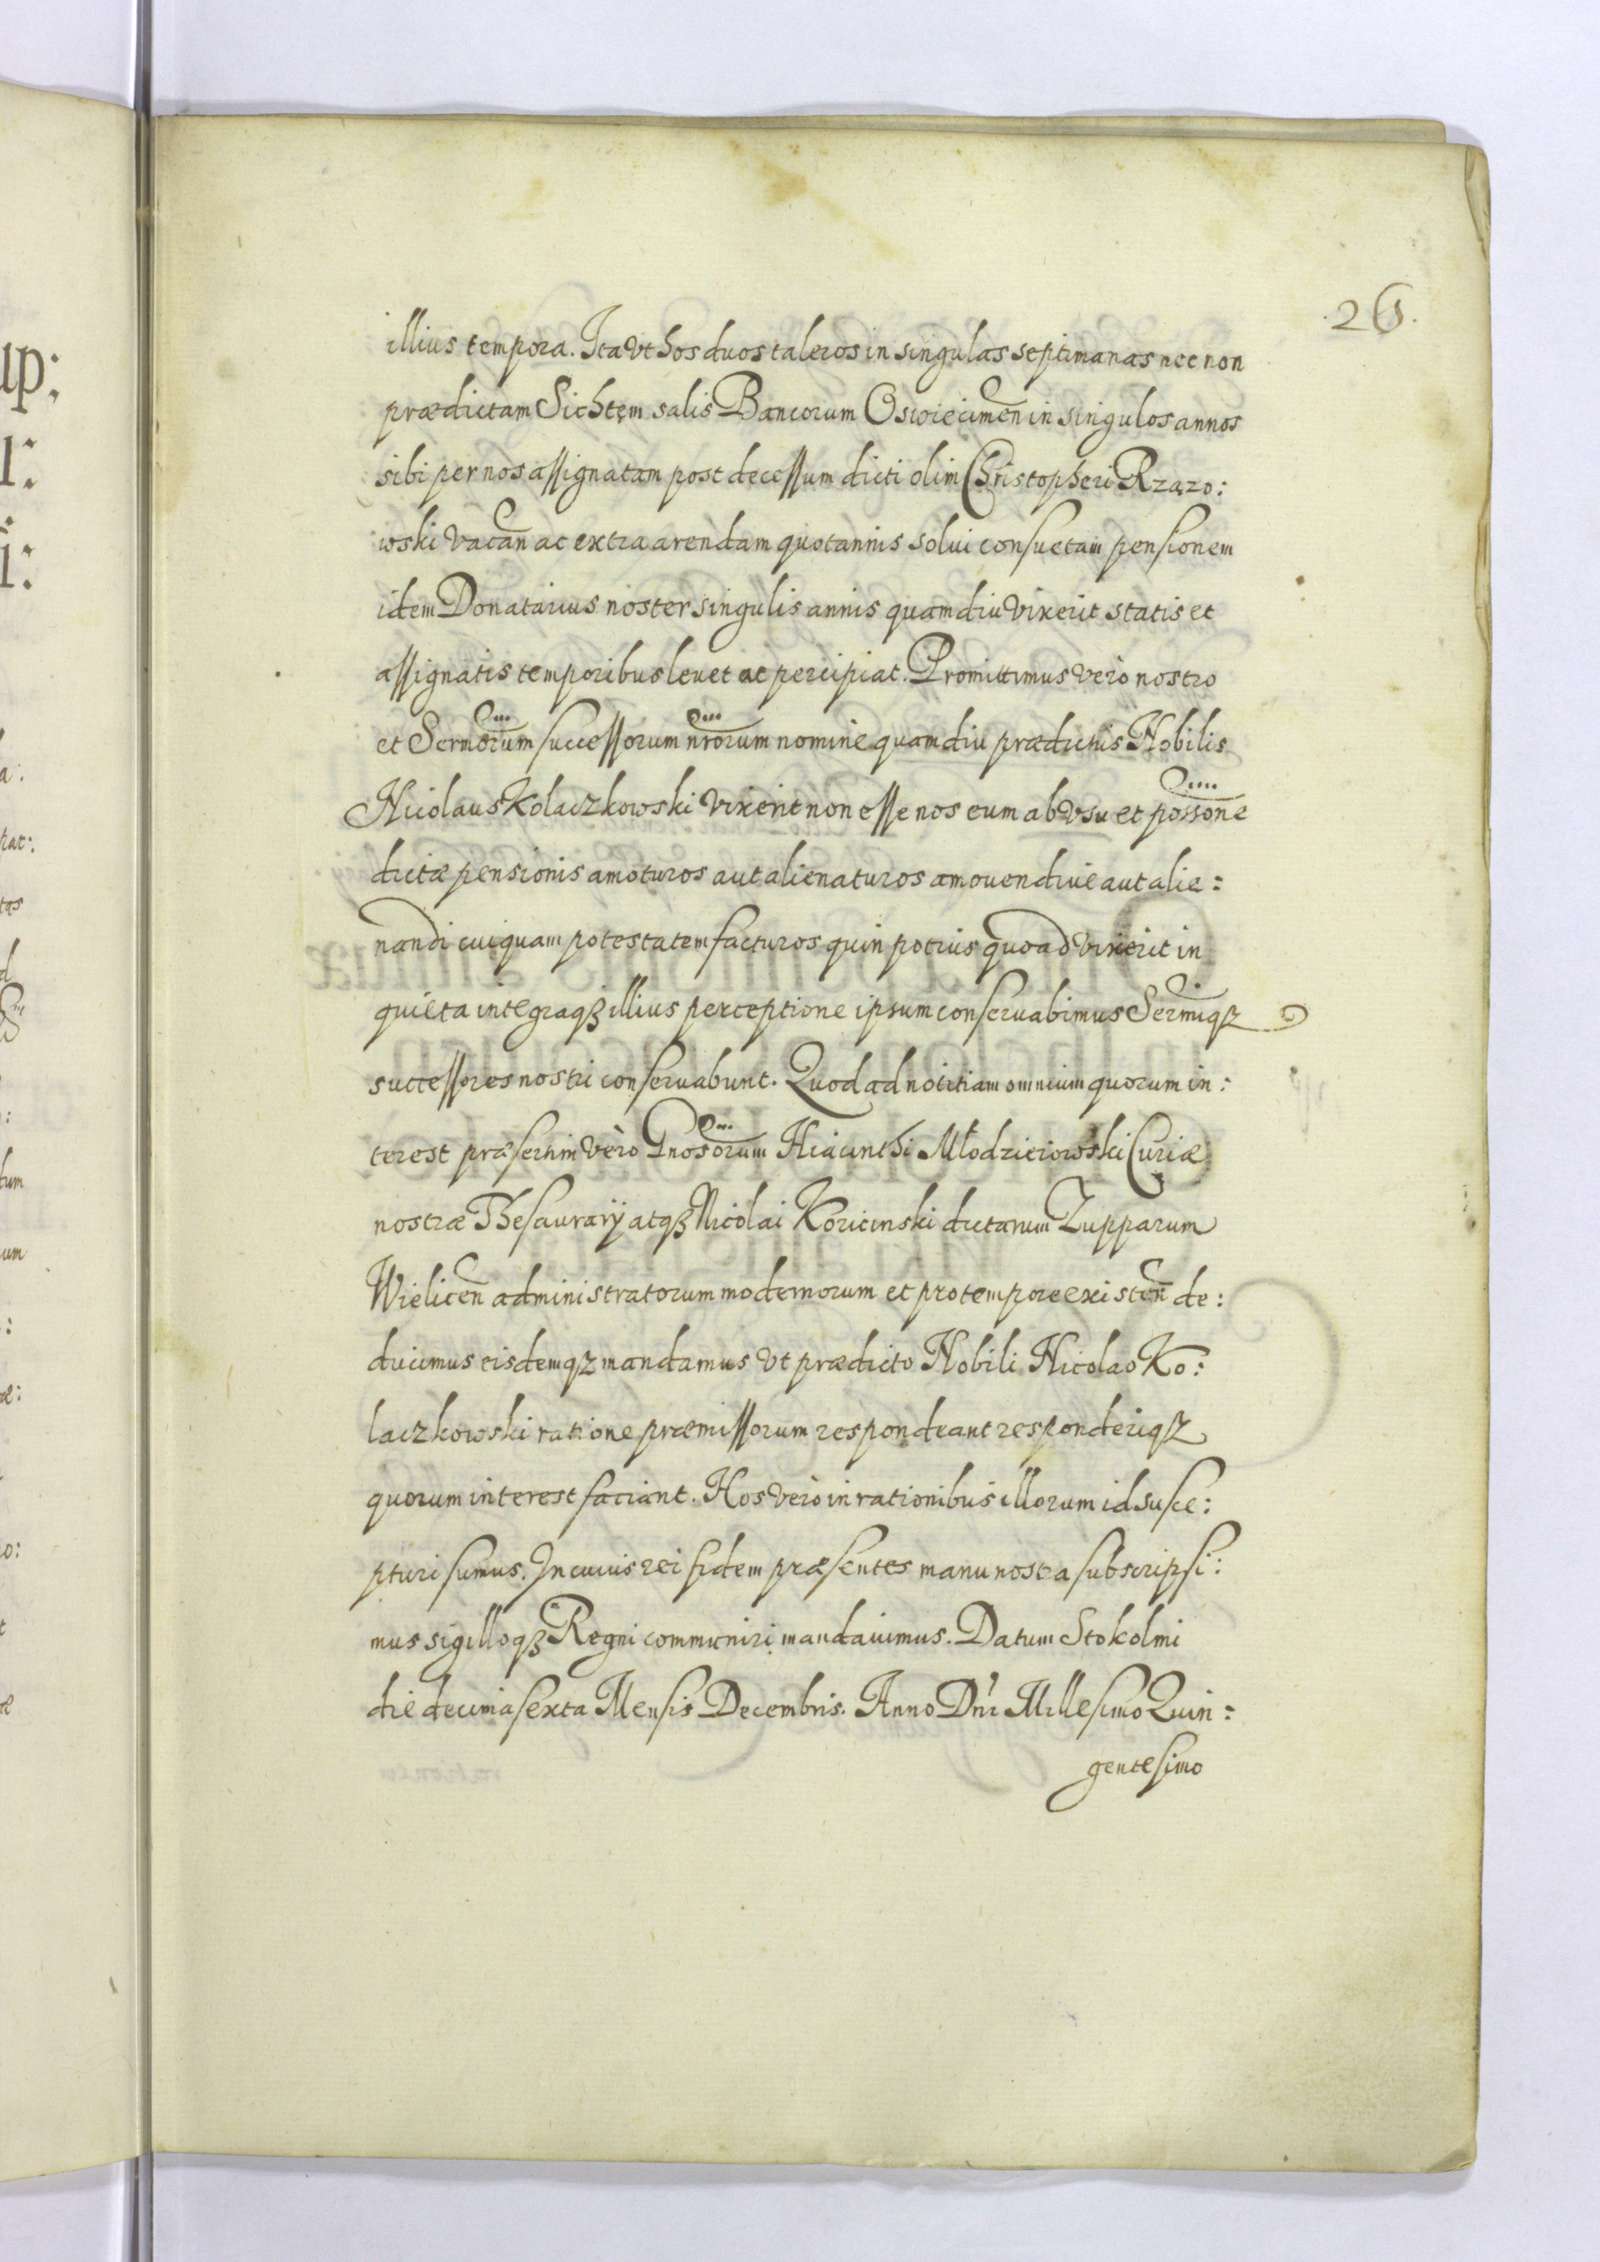 26.
illius tempora. Ita vt hos duos taleros in singulas septimanas nec non
prædictam Sichtem salis Bancorum Oswiecimen in singulos annos
sibi per nos assignatam post decessum dicti olim Christopheri Rzązo:
wski vacan ac extra arendam quotannis solui consuetam pensionem
idem Donatarius noster singulis annis quamdiu vixerit statis et
assignatis temporibus leuet ac percipiat. Promittimus verò nostro
et Sermorum successorum nrorum nomine quamdiu prædictus Nobilis
Nicolaus Kolaczkowski vixerit non esse nos eum ab vsu et possone
dictæ pensionis amoturos aut alienaturos amouendiue aut alie:
nandi cuiquam potestatem facturos quin potius quoad vixerit in
quieta integraqȝ illius perceptione ipsum conseruabimus Sermiqȝ
successores nostri conseruabunt. Quod ad notitiam omnium quorum in:
terest præsertim verò Gnosorum Hiacinthi Młodzieiowski Curiæ
nostræ Thesaurarÿ atqȝ Nicolai Koricinski dictarum Zupparum
Wielicen administratorum modernorum et pro tempore existen de:
ducimus eisdemqȝ mandamus vt prædicto Nobili Nicolao Ko:
laczkowski ratione præmissorum respondeant responderiqȝ
quorum interest faciant. Hos verò in rationibus illorum id susce:
pturi sumus. In cuius rei fidem præsentes manu nostra subscripsi:
mus sigilloqȝ Regni communiri mandauimus. Datum Stokolmi
die decima sexta Mensis Decembris. Anno Dni Millesimo Quin:
gentesimo